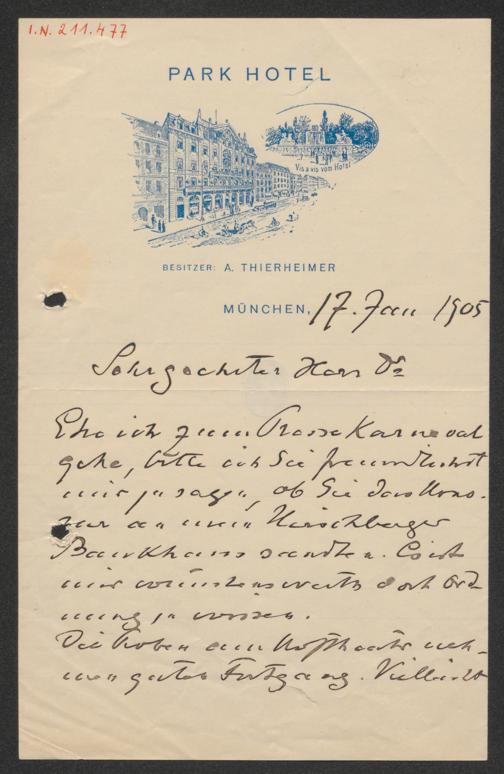 I.N. 211.477
PARK HOTEL
Vis à vis vom Hotel
BESITZER: A. THIERHEIMER
MÜNCHEN, 17. Jan 1905
Sehr geehrter Herr Dr
Ehe ich zum Presse Karneval
gehe, bitte ich Sie freundlichst
mir zu sagen, ob Sie das Hono-
rar an mein Hirschberger
Bankhaus sandten. Es ist
mir wünschenswerth dort Ord-
nung zu wissen.
Die Proben am Hoftheater neh-
men guten Fortgang. Vielleicht